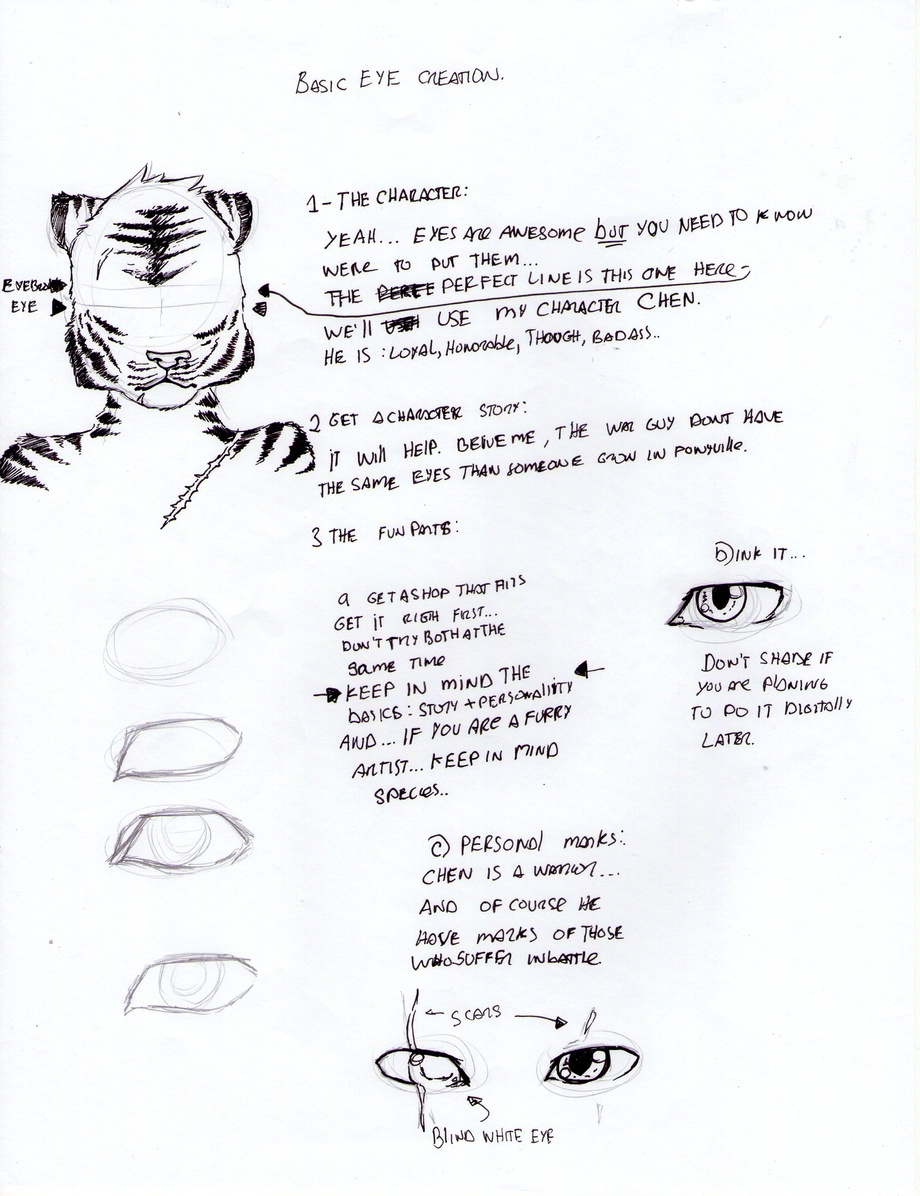 BASIC EYE CREATION.
1- THE CHARACTER:
YEAH... EYES ARE AWESOME but YOU NEED TO KNOW
WERE TO PUT THEM...
THE PERFECT LINE IS THIS ONE HERE
WE'LL USE MY CHARACTER CHEN.
HE IS : LOYAL, HONORABLE, THOUGH, BADASS..
EYEBROW
EYE
2 GET A CHARACTER STORY:
IT WILL HELP. BELIVE ME, THE WAR GUY DONT HAVE
THE SAME EYES THAN SOMEONE GROW IN PONYVILLE.
3 THE FUN PARTS:
a GET A SHAP THAT FITS
GET IT RIGTH FIRST...
DON'T TRY BOTH AT THE
SAME TIME
KEEP IN MIND THE
BASICS: STORY + PERSONALITY
AND... IF YOU ARE A FURRY
ARTIST... KEEP IN MIND
SPECIES..
b) INK IT...
DON'T SHADE IF
YOU ARE PLANING
TO DO IT DIGITALLY
LATER.
C) PERSONAL MARKS:
CHEN IS A
AND OF COURSE HE
HAVE MARKS OF THOSE
WHO SUFFER IN BATTLE.
SCARS
BLIND WHITE EYE